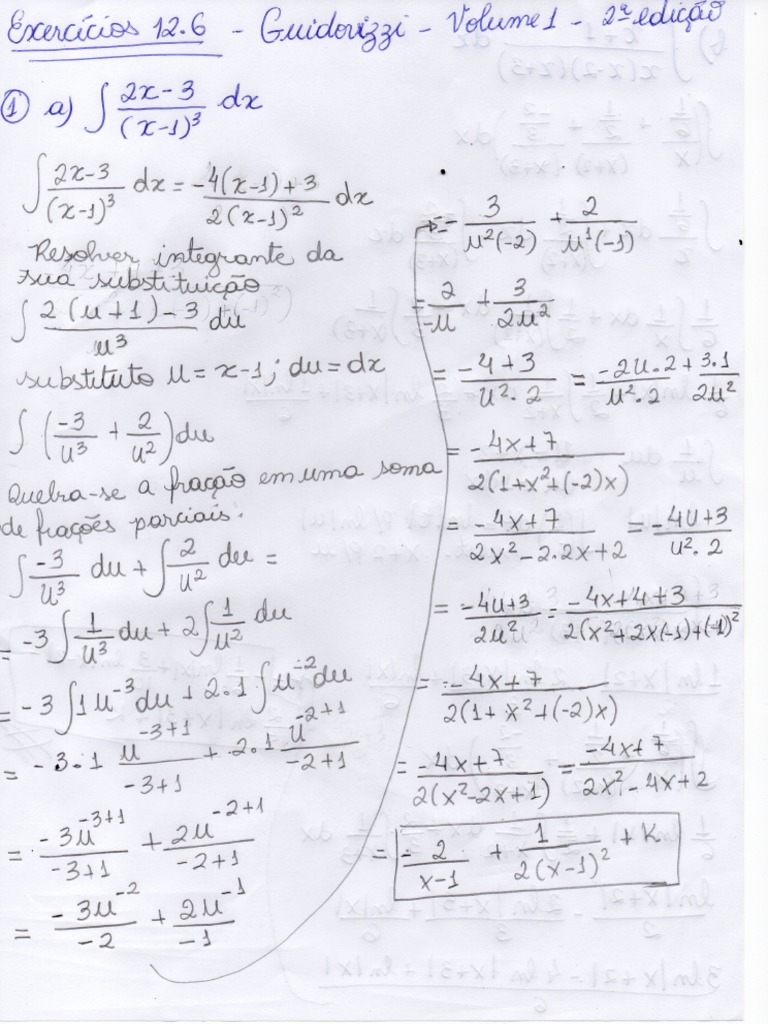 Exercícios 12.6 - Guidorizzi - Volume 1 - 2ª edição
① a) ∫ (2x-3)/(x-1)³ dx
∫ (2x-3)/(x-1)³ dx = (-4(x-1)+3)/(2(x-1)²) dx
Resolver integrante da
sua substituição
∫ (2(u+1)-3)/u³ du
substituto u = x-1; du = dx
∫ (-3/u³ + 2/u²) du
Quebra-se a fração em uma soma
de frações parciais:
∫ -3/u³ du + ∫ 2/u² du =
= -3 ∫ 1/u³ du + 2 ∫ 1/u² du
= -3 ∫ 1u⁻³ du + 2.1 ∫ u⁻² du
= -3.1 u^(-3+1)/(-3+1) + 2.1 u^(-2+1)/(-2+1)
= -3u^(-3+1)/(-3+1) + 2u^(-2+1)/(-2+1)
= -3u⁻²/-2 + 2u⁻¹/-1
= - 3/(u²(-2)) + 2/(u¹(-1))
= 2/-u + 3/2u²
= (-4+3)/(u².2) = (-2u.2+3.1)/(u².2 2u²)
= (-4x+7)/(2(1+x²+(-2)x))
= (-4x+7)/(2x²-2.2x+2) = (-4u+3)/(u².2)
= (-4u+3)/2u² = (-4x+4+3)/(2(x²+2x(-1)+(-1)²
= (-4x+7)/(2(1+x²+(-2)x))
= (-4x+7)/(2(x²-2x+1)) = (-4x+7)/(2x²-4x+2)
= - 2/(x-1) + 1/(2(x-1)²) + K